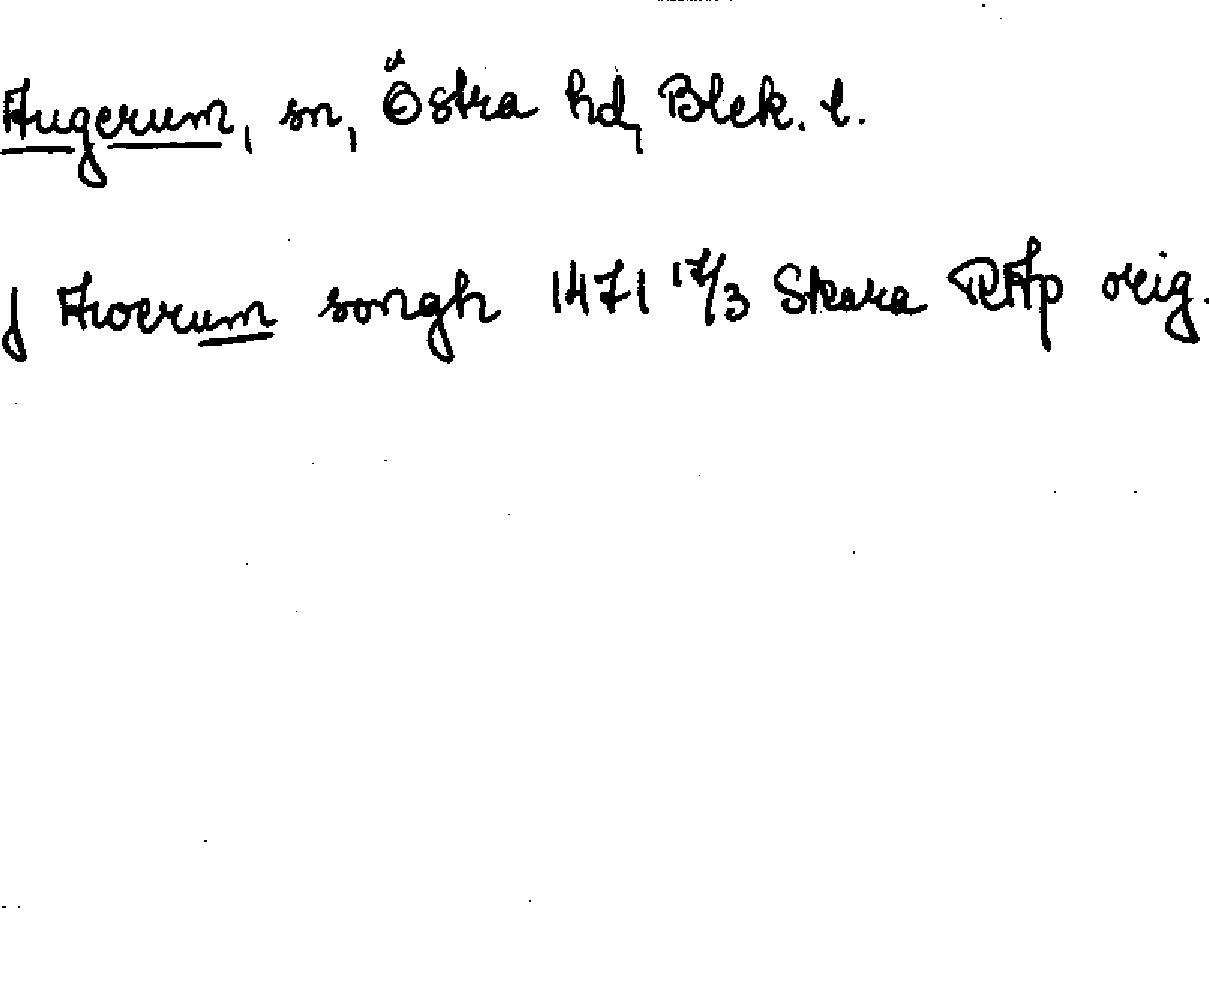 Augerum, sn, Östra hd, Blek. l.
j Awerum songh 1471 17/3 Skara RAp orig.